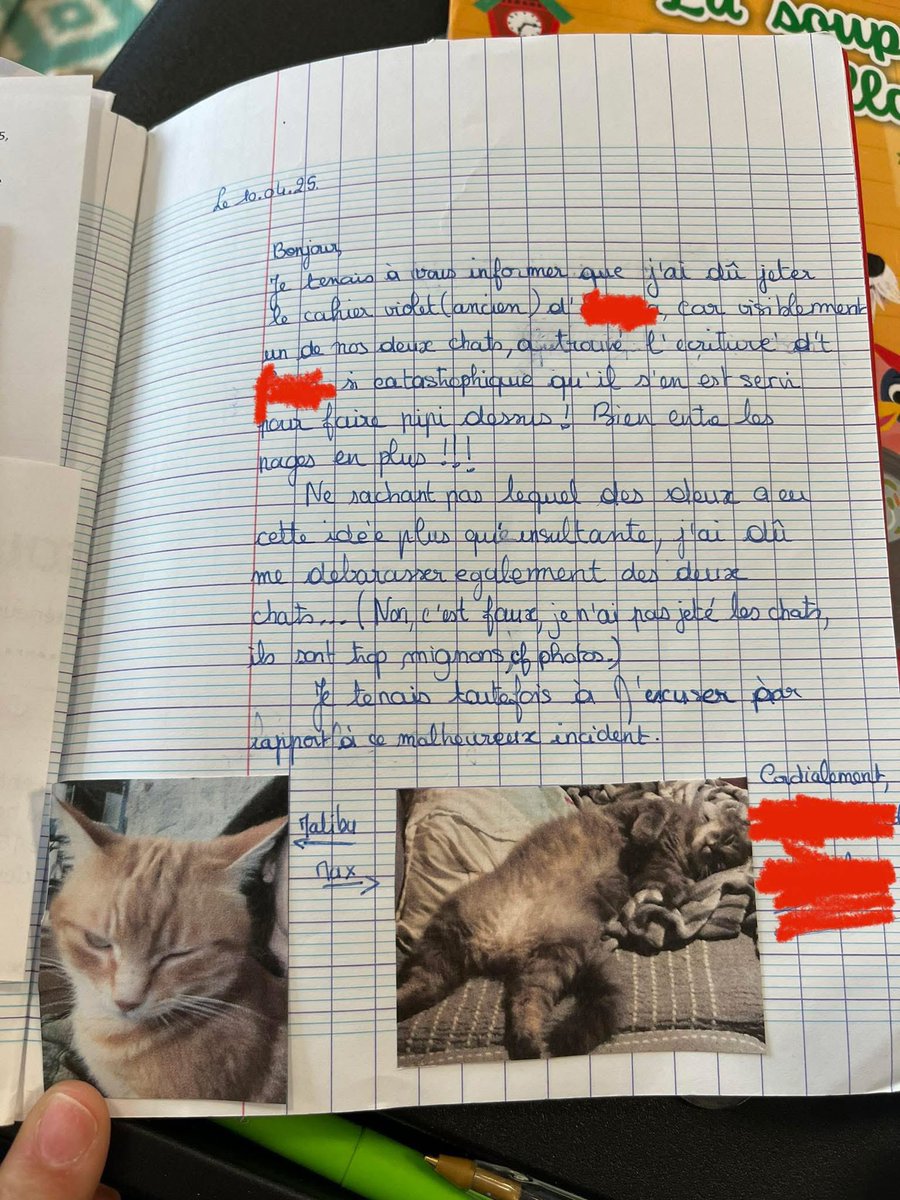 La soup
Le 10.04.25.
Bonjour,
Je tenais à vous informer que j'ai dû jeter
le cahier violet (ancien) d' , car visiblement
un de nos deux chats, a trouvé l'écriture d't
si catastophique qu'il s'en est servi
pour faire pipi dessus ! Bien ente les
pages en plus !!!
Ne sachant pas lequel des deux a eu
cette idée plus qu'insultante, j'ai dû
me débarasser egalement des deux
chats... (Non, c'est faux, je n'ai pas jeté les chats,
ils sont trop mignons, cf photos.)
Je tenais toutefois à m'excuser par
rapport à ce malheureux incident.
Cordialement,
Malibu
Max